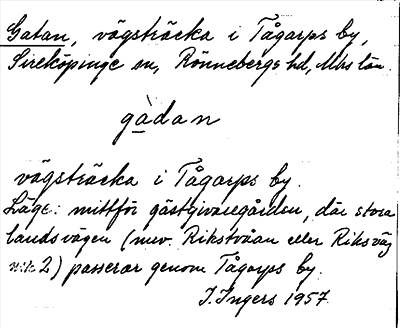 Gatan, vägsträcka i Tågarps by,
Sireköpinge sn, Rönnebergs hd, Mhs län.
gàdan
vägsträcka i Tågarps by.
Läge: mittför gästgivaregården, där stora
landsvägen (nuv. Rikstvåan eller Riksväg
n:r 2) passerar genom Tågarps by.
I. Ingers 1957